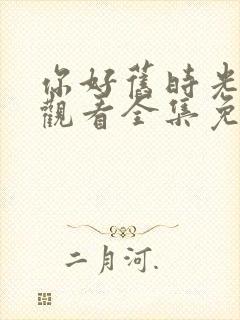 你好舊時光
觀看全集免
二月河.